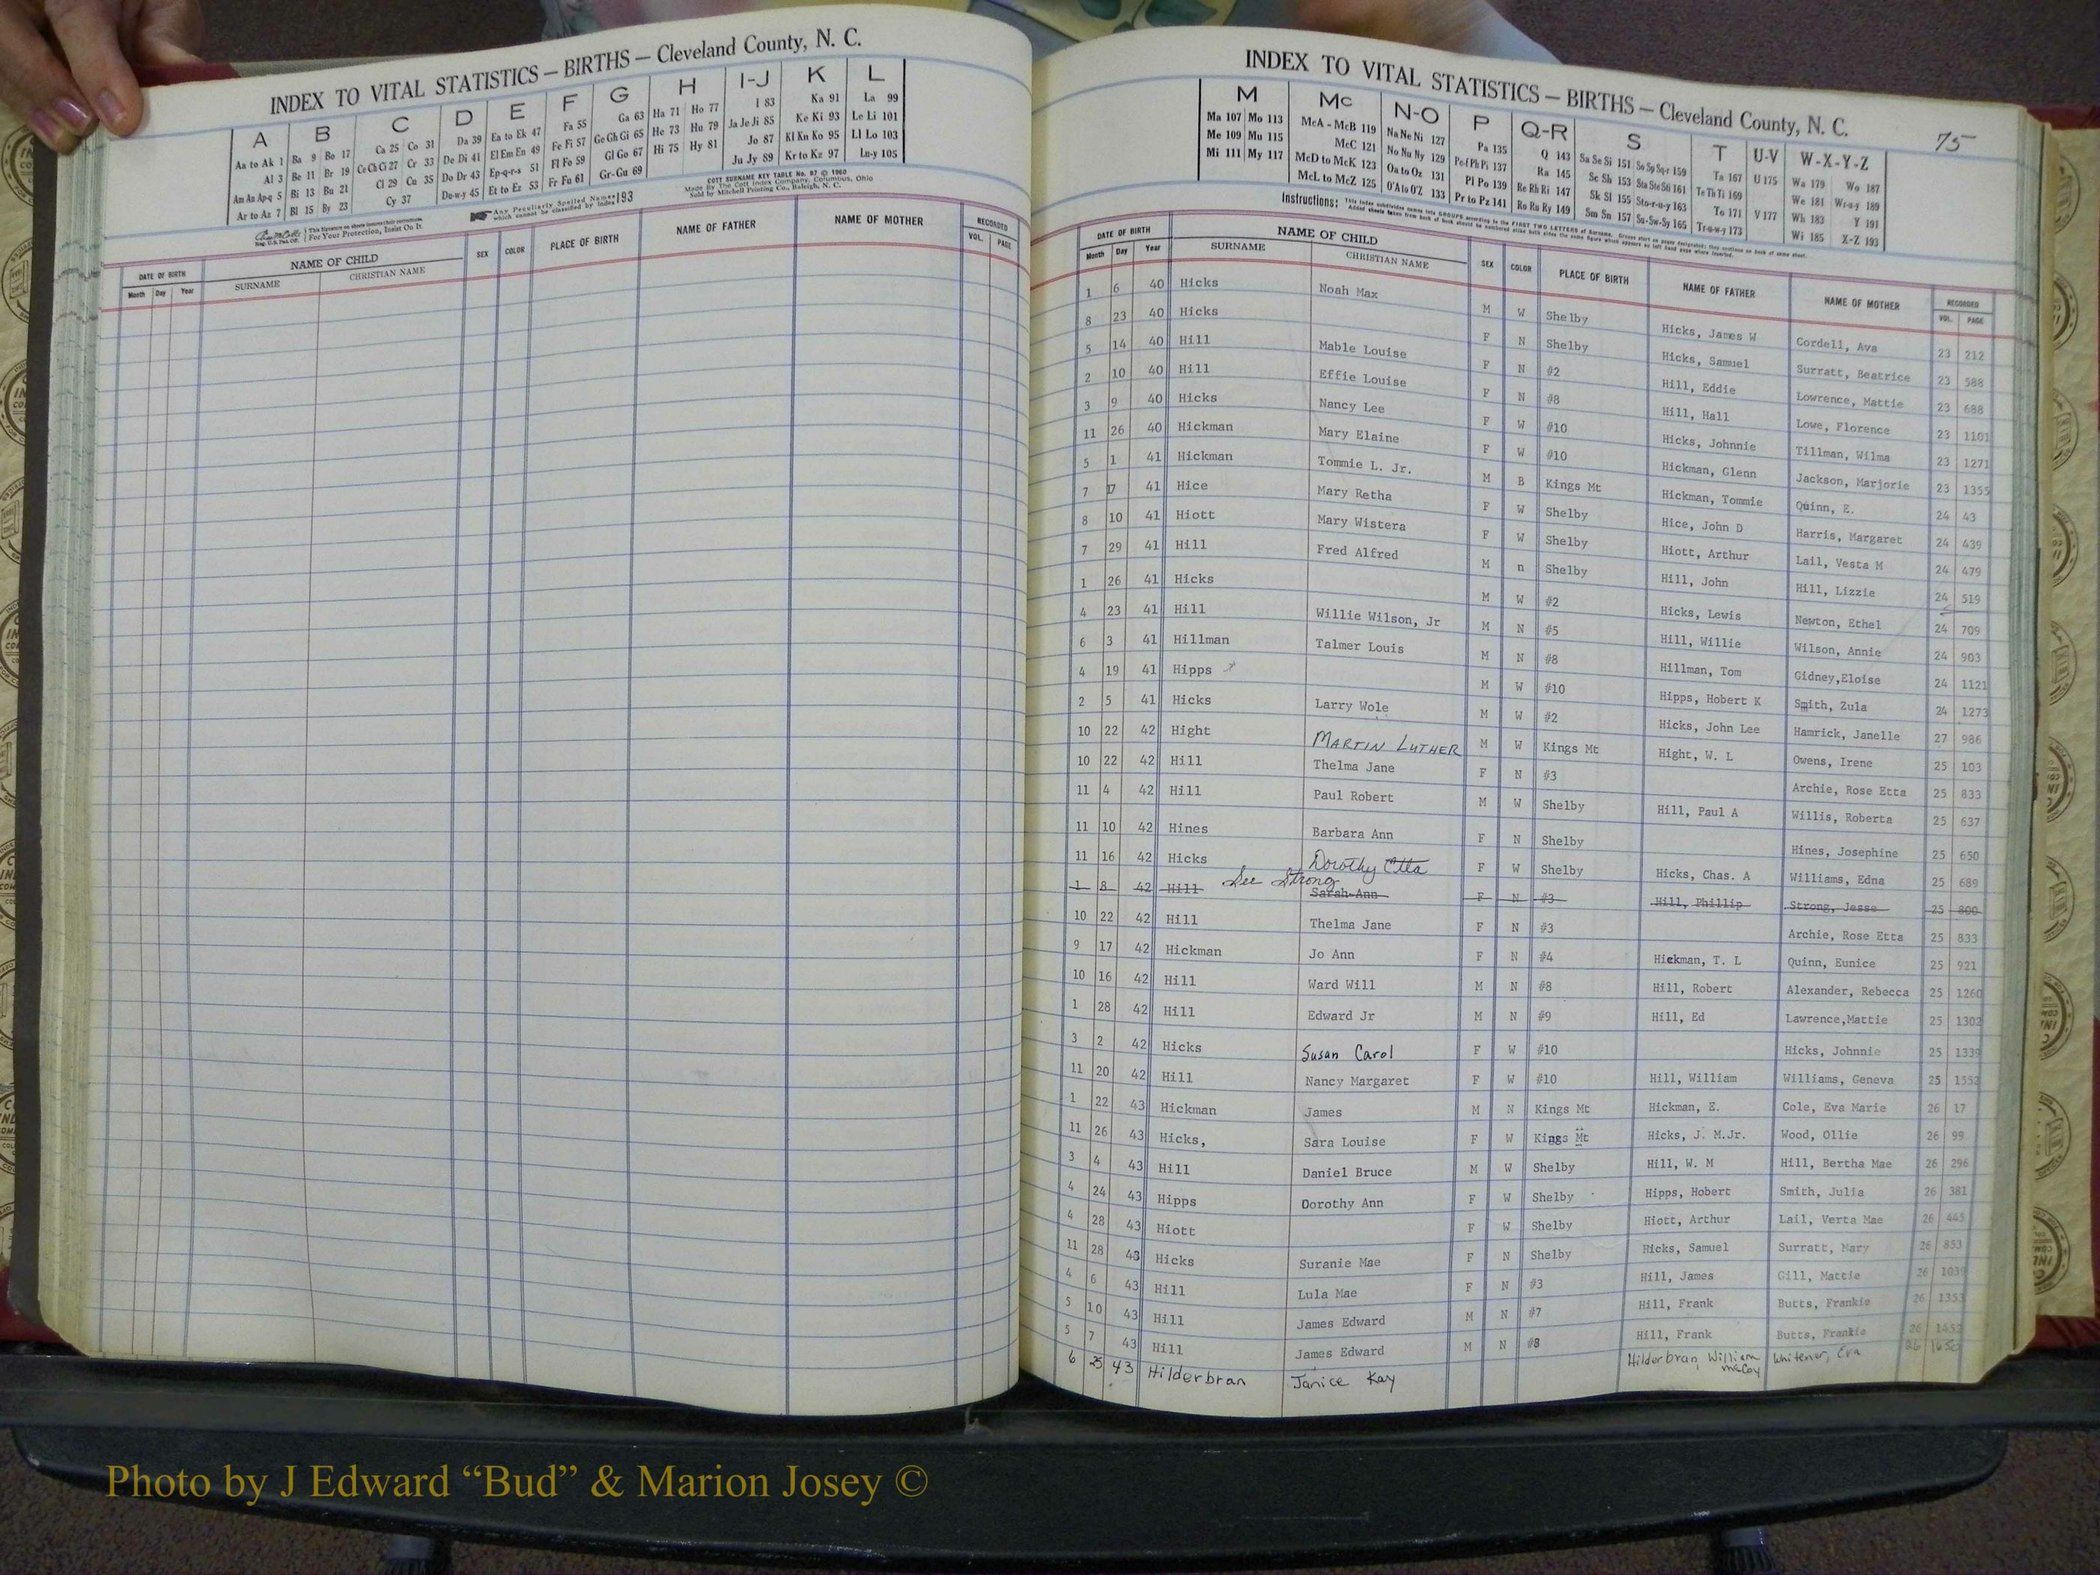 INDEX TO VITAL STATISTICS — BIRTHS — Cleveland County, N. C.
A B C D E F G H I-J K L
Aa to Ak 1 Ba 9 Bo 17 Ca 25 Co 31 Da 39 Ea to Ek 47 Fa 55 Ga 63 Ha 71 Ho 77 I 83 Ka 91 La 99
Al 3 Be 11 Br 19 Ce Ch Ci 27 Cr 33 De Di 41 El Em En 49 Fe Fi 57 Ge Gh Gi 65 He 73 Hu 79 Ja Je Ji 85 Ke Ki 93 Le Li 101
Am An Ap-q 5 Bi 13 Bu 21 Cl 29 Cu 35 Do Dr 43 Ep-q-r-s 51 Fl Fo 59 Gl Go 67 Hi 75 Hy 81 Jo 87 Kl Kn Ko 95 Ll Lo 103
Ar to Az 7 Bl 15 By 23 Cy 37 Du-w-y 45 Et to Ez 53 Fr Fu 61 Gr-Gu 69 Ju Jy 89 Kr to Kz 97 Lu-y 105
COTT SURNAME KEY TABLE No. 97 © 1960
Made By The Cott Index Company, Columbus, Ohio
Sold by Mitchell Printing Co., Raleigh, N. C.
Any Peculiarly Spelled Names which cannot be classified by index 193
For Your Protection, Insist On It
DATE OF BIRTH NAME OF CHILD SEX COLOR PLACE OF BIRTH NAME OF FATHER NAME OF MOTHER RECORDED
Month Day Year SURNAME CHRISTIAN NAME VOL. PAGE
INDEX TO VITAL STATISTICS — BIRTHS — Cleveland County, N. C.
75
M Mc N-O P Q-R S T U-V W-X-Y-Z
Ma 107 Mo 113 McA - McB 119 Na Ne Ni 127 Pa 135 Q 143 Sa Se Si 151 So Sp Sq-r 159 Ta 167 U 175 Wa 179 Wo 187
Me 109 Mu 115 McC 121 No Nu Ny 129 Pe-f Ph Pi 137 Ra 145 Sc Sh 153 Sta Ste Sti 161 Te Th Ti 169 We 181 Wr-u-y 189
Mi 111 My 117 McD to McK 123 Oa to Oz 131 Pl Po 139 Re Rh Ri 147 Sk Sl 155 Sto-r-u-y 163 To 171 V 177 Wh 183 Y 191
McL to McZ 125 O'A to O'Z 133 Pr to Pz 141 Ro Ru Ry 149 Sm Sn 157 Su-Sw-Sy 165 Tr-u-w-y 173 Wi 185 X-Z 193
Instructions: This index subdivides names into GROUPS according to the FIRST TWO LETTERS of Surname.
DATE OF BIRTH NAME OF CHILD SEX COLOR PLACE OF BIRTH NAME OF FATHER NAME OF MOTHER RECORDED
Month Day Year SURNAME CHRISTIAN NAME VOL. PAGE
1 6 40 Hicks Noah Max M W Shelby Hicks, James W Cordell, Ava 23 212
8 23 40 Hicks F N Shelby Hicks, Samuel Surratt, Beatrice 23 588
5 14 40 Hill Mable Louise F N #2 Hill, Eddie Lowrence, Mattie 23 688
2 10 40 Hill Effie Louise F N #8 Hill, Hall Lowe, Florence 23 1101
3 9 40 Hicks Nancy Lee F W #10 Hicks, Johnnie Tillman, Wilma 23 1271
11 26 40 Hickman Mary Elaine F W #10 Hickman, Glenn Jackson, Marjorie 23 1355
5 1 41 Hickman Tommie L. Jr. M B Kings Mt Hickman, Tommie Quinn, E. 24 43
7 17 41 Hice Mary Retha F W Shelby Hice, John D Harris, Margaret 24 439
8 10 41 Hiott Mary Wistera F W Shelby Hiott, Arthur Lail, Vesta M 24 479
7 29 41 Hill Fred Alfred M n Shelby Hill, John Hill, Lizzie 24 519
1 26 41 Hicks M W #2 Hicks, Lewis Newton, Ethel 24 709
4 23 41 Hill Willie Wilson, Jr M N #5 Hill, Willie Wilson, Annie 24 903
6 3 41 Hillman Talmer Louis M N #8 Hillman, Tom Gidney,Eloise 24 1121
4 19 41 Hipps M W #10 Hipps, Hobert K Smith, Zula 24 1273
2 5 41 Hicks Larry Wole M W #2 Hicks, John Lee Hamrick, Janelle 27 986
10 22 42 Hight MARTIN LUTHER M W Kings Mt Hight, W. L Owens, Irene 25 103
10 22 42 Hill Thelma Jane F N #3 Archie, Rose Etta 25 833
11 4 42 Hill Paul Robert M W Shelby Hill, Paul A Willis, Roberta 25 637
11 10 42 Hines Barbara Ann F N Shelby Hines, Josephine 25 650
11 16 42 Hicks Dorothy Etta F W Shelby Hicks, Chas. A Williams, Edna 25 689
1 8 42 Hill See Strong Sarah Ann F N #3 Hill, Phillip Strong, Jesse 25 800
10 22 42 Hill Thelma Jane F N #3 Archie, Rose Etta 25 833
9 17 42 Hickman Jo Ann F N #4 Hickman, T. L Quinn, Eunice 25 921
10 16 42 Hill Ward Will M N #8 Hill, Robert Alexander, Rebecca 25 1260
1 28 42 Hill Edward Jr M N #9 Hill, Ed Lawrence,Mattie 25 1302
3 2 42 Hicks Susan Carol F W #10 Hicks, Johnnie 25 1339
11 20 42 Hill Nancy Margaret F W #10 Hill, William Williams, Geneva 25 1552
1 22 43 Hickman James M N Kings Mt Hickman, E. Cole, Eva Marie 26 17
11 26 43 Hicks, Sara Louise F W Kings Mt Hicks, J. M.Jr. Wood, Ollie 26 99
3 4 43 Hill Daniel Bruce M W Shelby Hill, W. M Hill, Bertha Mae 26 296
4 24 43 Hipps Dorothy Ann F W Shelby Hipps, Hobert Smith, Julia 26 381
4 28 43 Hiott F W Shelby Hiott, Arthur Lail, Verta Mae 26 445
11 28 43 Hicks Suranie Mae F N Shelby Hicks, Samuel Surratt, Mary 26 853
4 6 43 Hill Lula Mae F N #3 Hill, James Gill, Mattie 26 1039
5 10 43 Hill James Edward M N #7 Hill, Frank Butts, Frankie 26 1353
5 7 43 Hill James Edward M N #8 Hill, Frank Butts, Frankie 26 1452
6 25 43 Hilderbran Janice Kay Hilderbran, William McCoy Whitener, Eva 26
Photo by J Edward “Bud” & Marion Josey ©